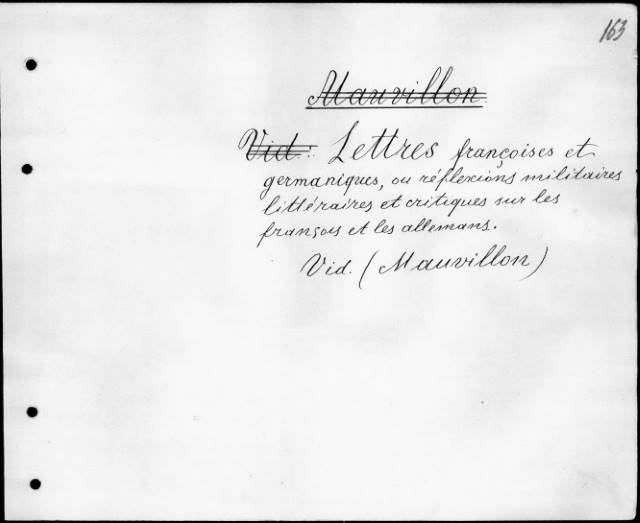 163
Mauvillon
Vid: Lettres françoises et
germaniques, ou réflexions militaires
littéraires et critiques sur les
françois et les allemans.
Vid. (Mauvillon)